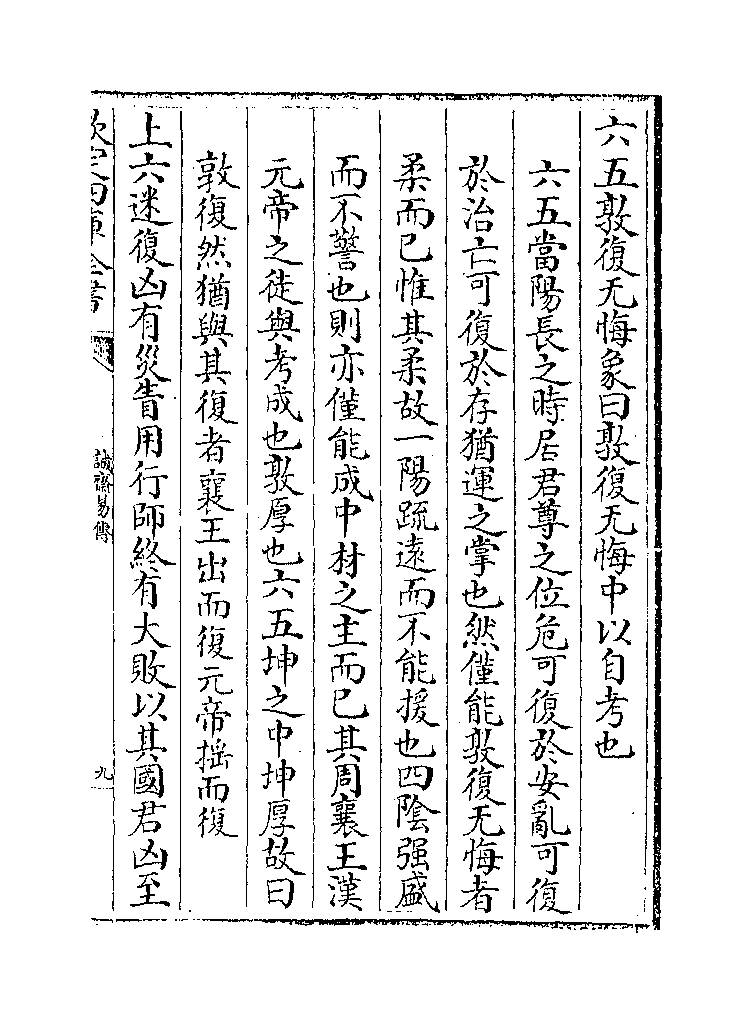 六五敦復无悔象曰敦復无悔中以自考也
六五當陽長之時居君尊之位危可復於安亂可復
於治亡可復於存猶運之掌也然僅能敦復无悔者
柔而已惟其柔故一陽䟽逺而不能援也四隂强盛
而不警也則亦僅能成中材之主而已其周襄王漢
元帝之徒與考成也敦厚也六五坤之中坤厚故曰
敦復然猶與其復者襄王出而復元帝揺而復
上六迷復凶有災眚用行師終有大敗以其國君凶至
欽定四庫全書
誠齋易傳
九